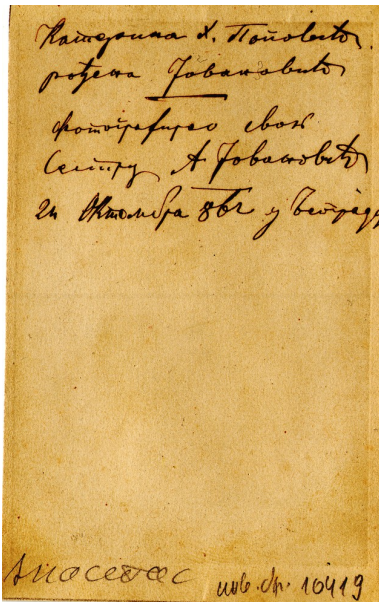 Катерина Х. Поповић
рођена Јовановић
фотографирао своју
Сестру А Јовановић
24 Октомбра 862 у Београду
инв. бр. 10419